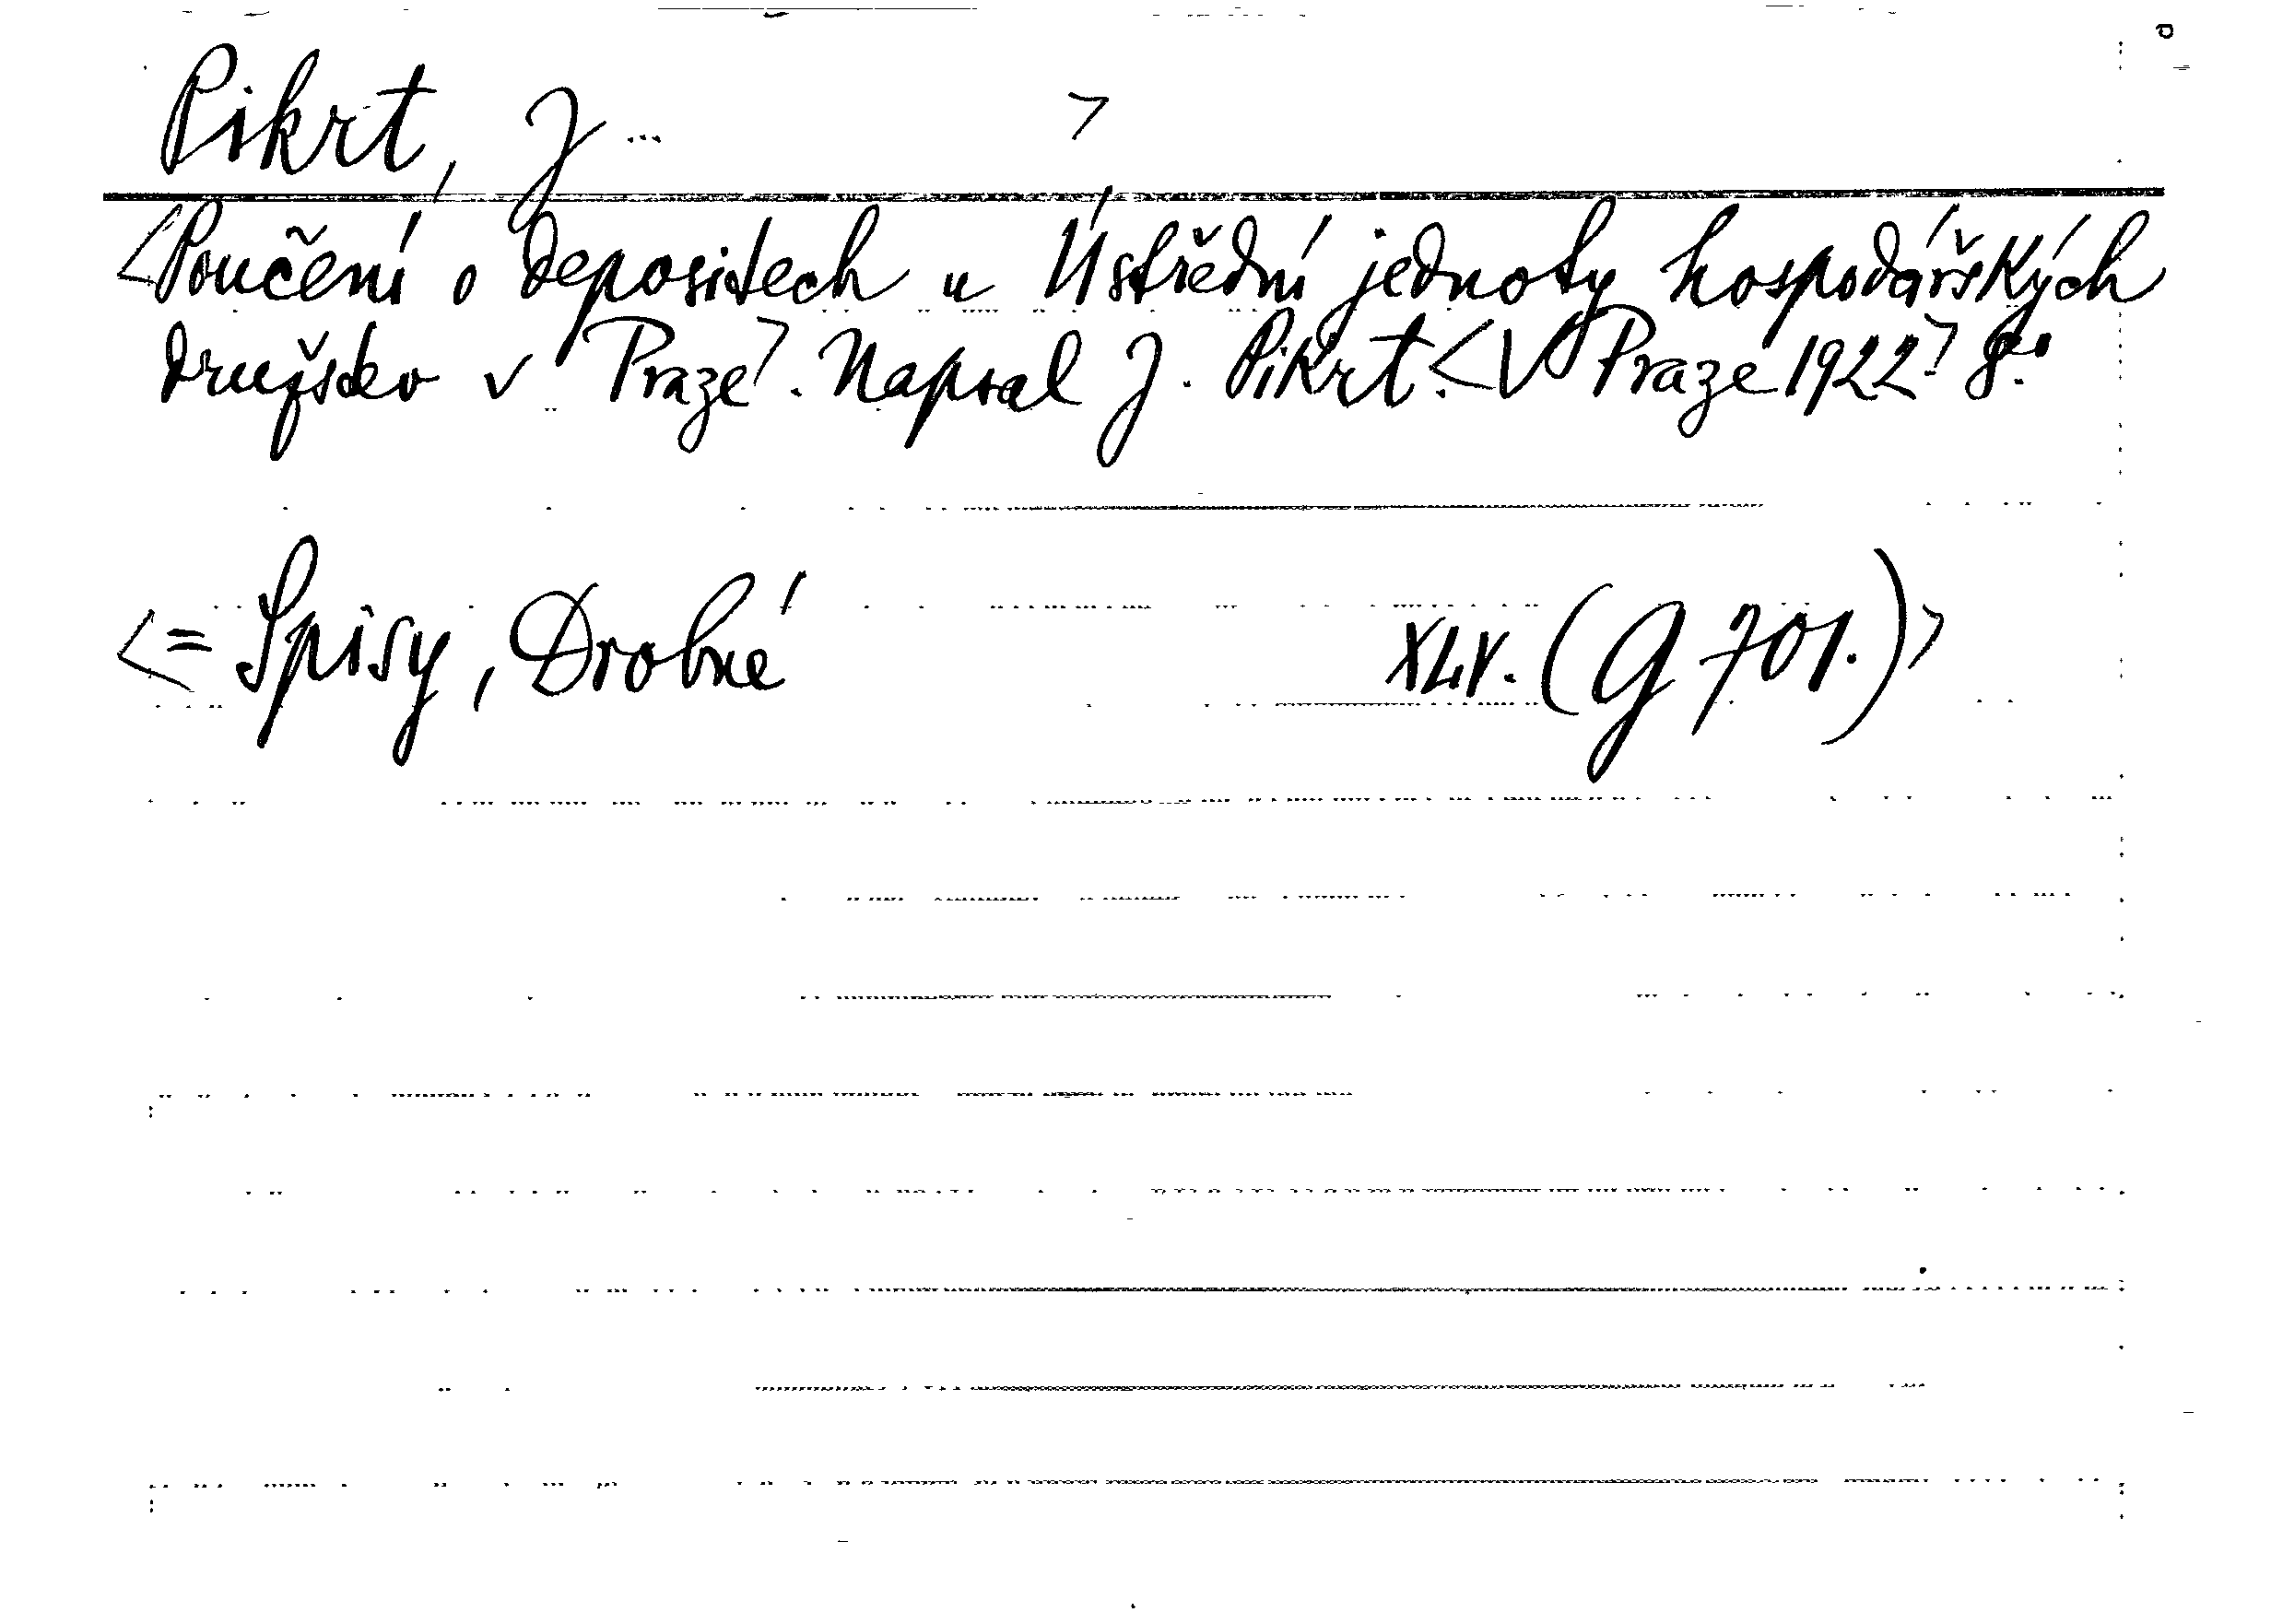 Pikrt, J... >
<Poučení o depositech u Ústřední jednoty hospodářských
družstev v Praze>. Napsal J. Pikrt. <V Praze 1922> 8°.
<= Spisy, Drobné XLV. (G 701.)>